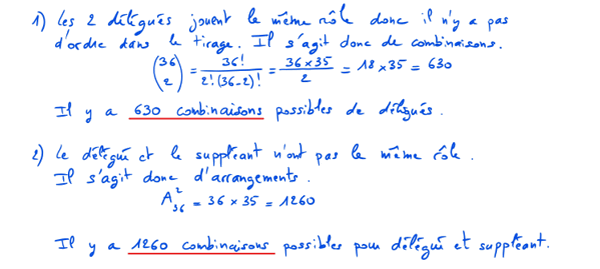 1) Les 2 délégués jouent le même rôle donc il n'y a pas
d'ordre dans le tirage. Il s'agit donc de combinaisons.
(36 2) = 36! / 2!(36-2)! = 36×35 / 2 = 18×35 = 630
Il y a 630 combinaisons possibles de délégués.
2) Le délégué et le suppléant n'ont pas le même rôle.
Il s'agit donc d'arrangements.
A₃₆² = 36×35 = 1260
Il y a 1260 combinaisons possibles pour délégué et suppléant.